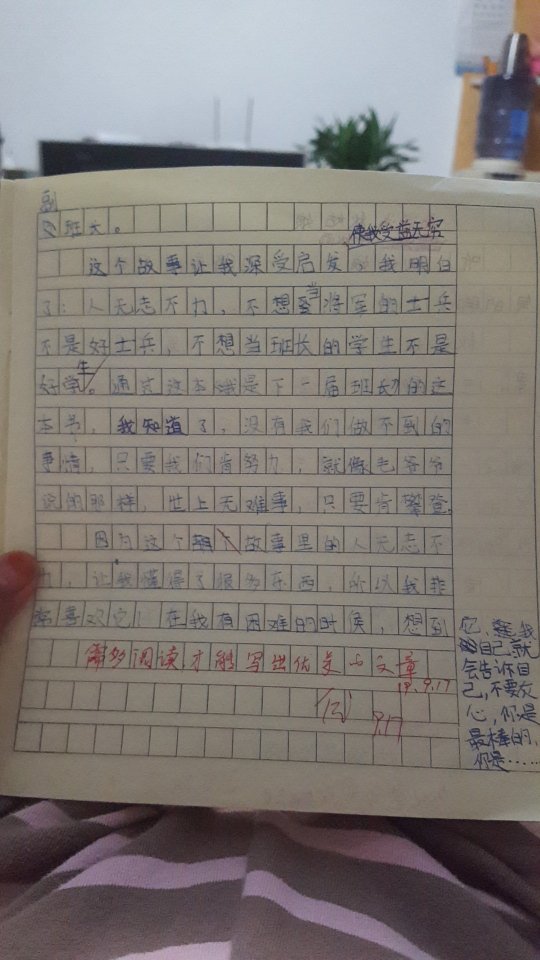 副
班长。
使我受益无穷
这个故事让我深受启发,我明白
了:人无志不力,不想当将军的士兵
不是好士兵,不想当班长的学生不是
好学生。通过这本《我是下一届班长》的这
本书,我知道了,没有我们做不到的
事情,只要我们肯努力,就像毛爷爷
说的那样,世上无难事,只要肯攀登。
因为这个故事里的人无志不
力,让我懂得了很多东西,所以我非
常喜欢它!在我有困难的时候,想到
它,我
自己,就
会告诉自
己,不要灰
心,你是
最棒的,
你是……
需多阅读,才能写出优美的文章
19.9.17
9.17